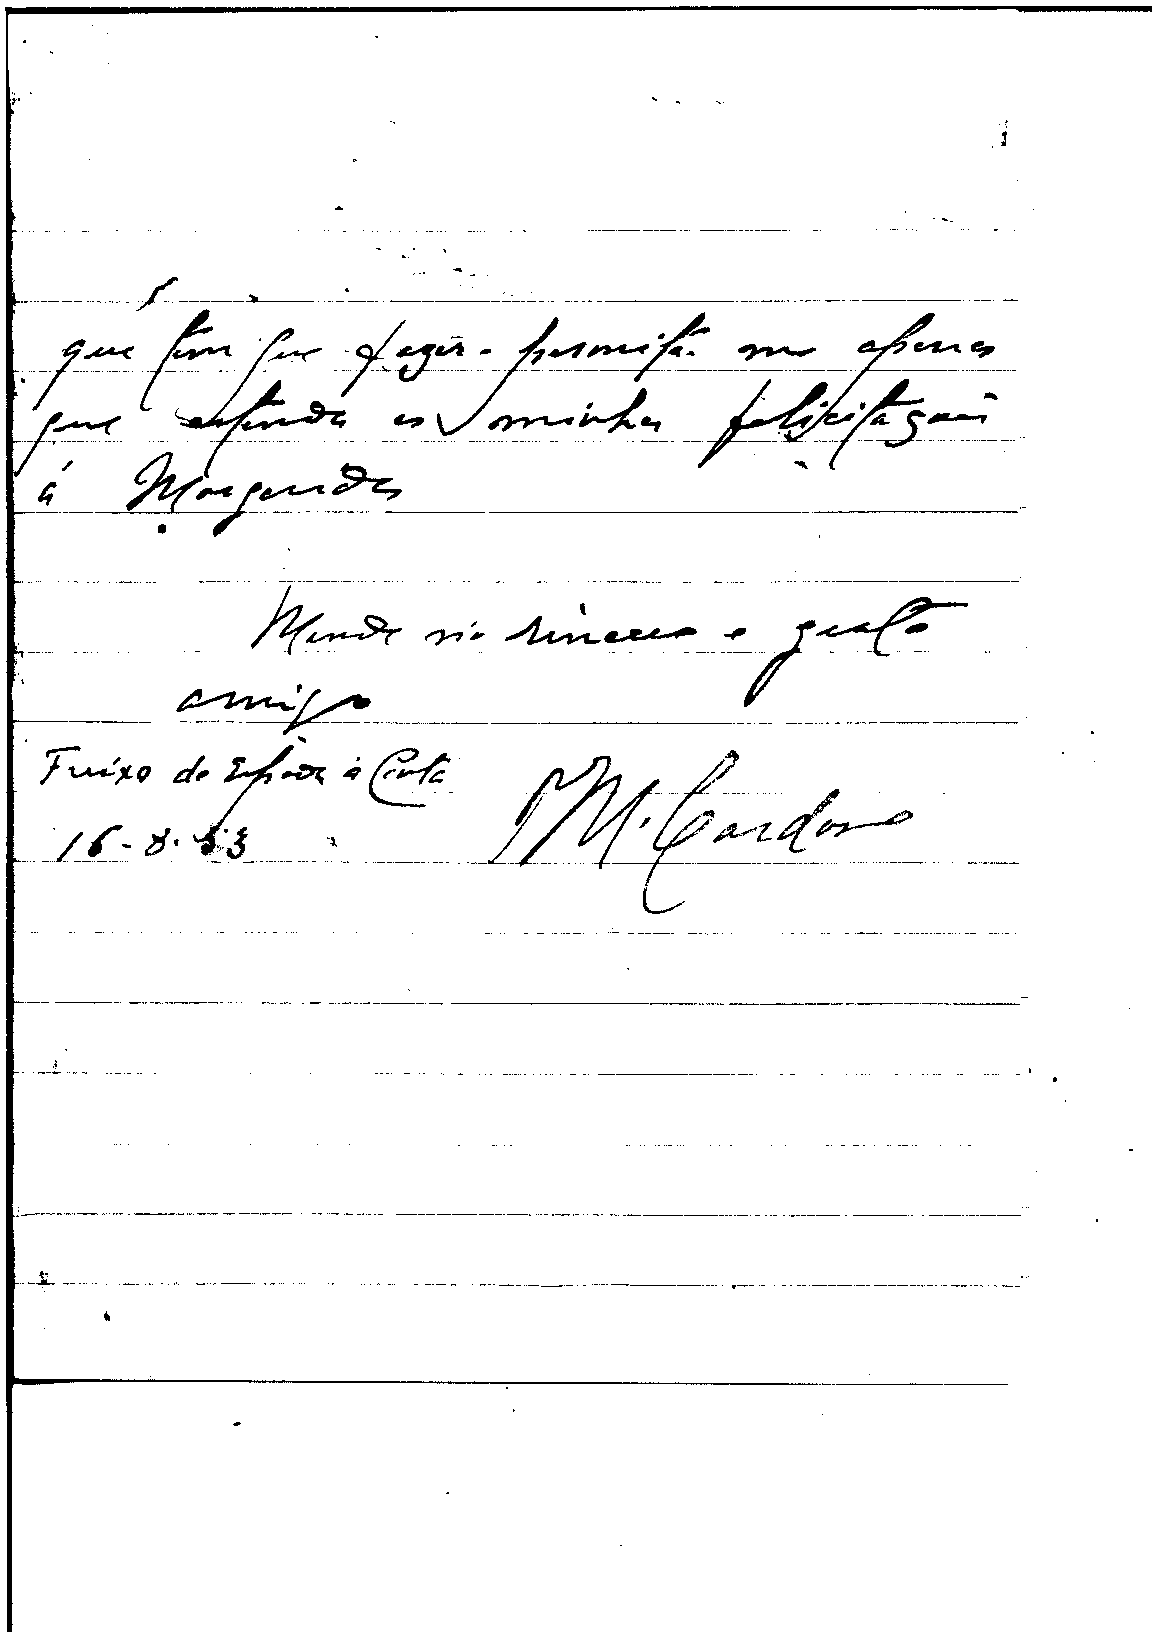 que tem que fazer - permita-me apenas
que estenda as minhas felicitações
á Margarida
Mande no sincero e grato
amigo
Freixo de Espada á Cinta
16-8-53
M. Cardoso